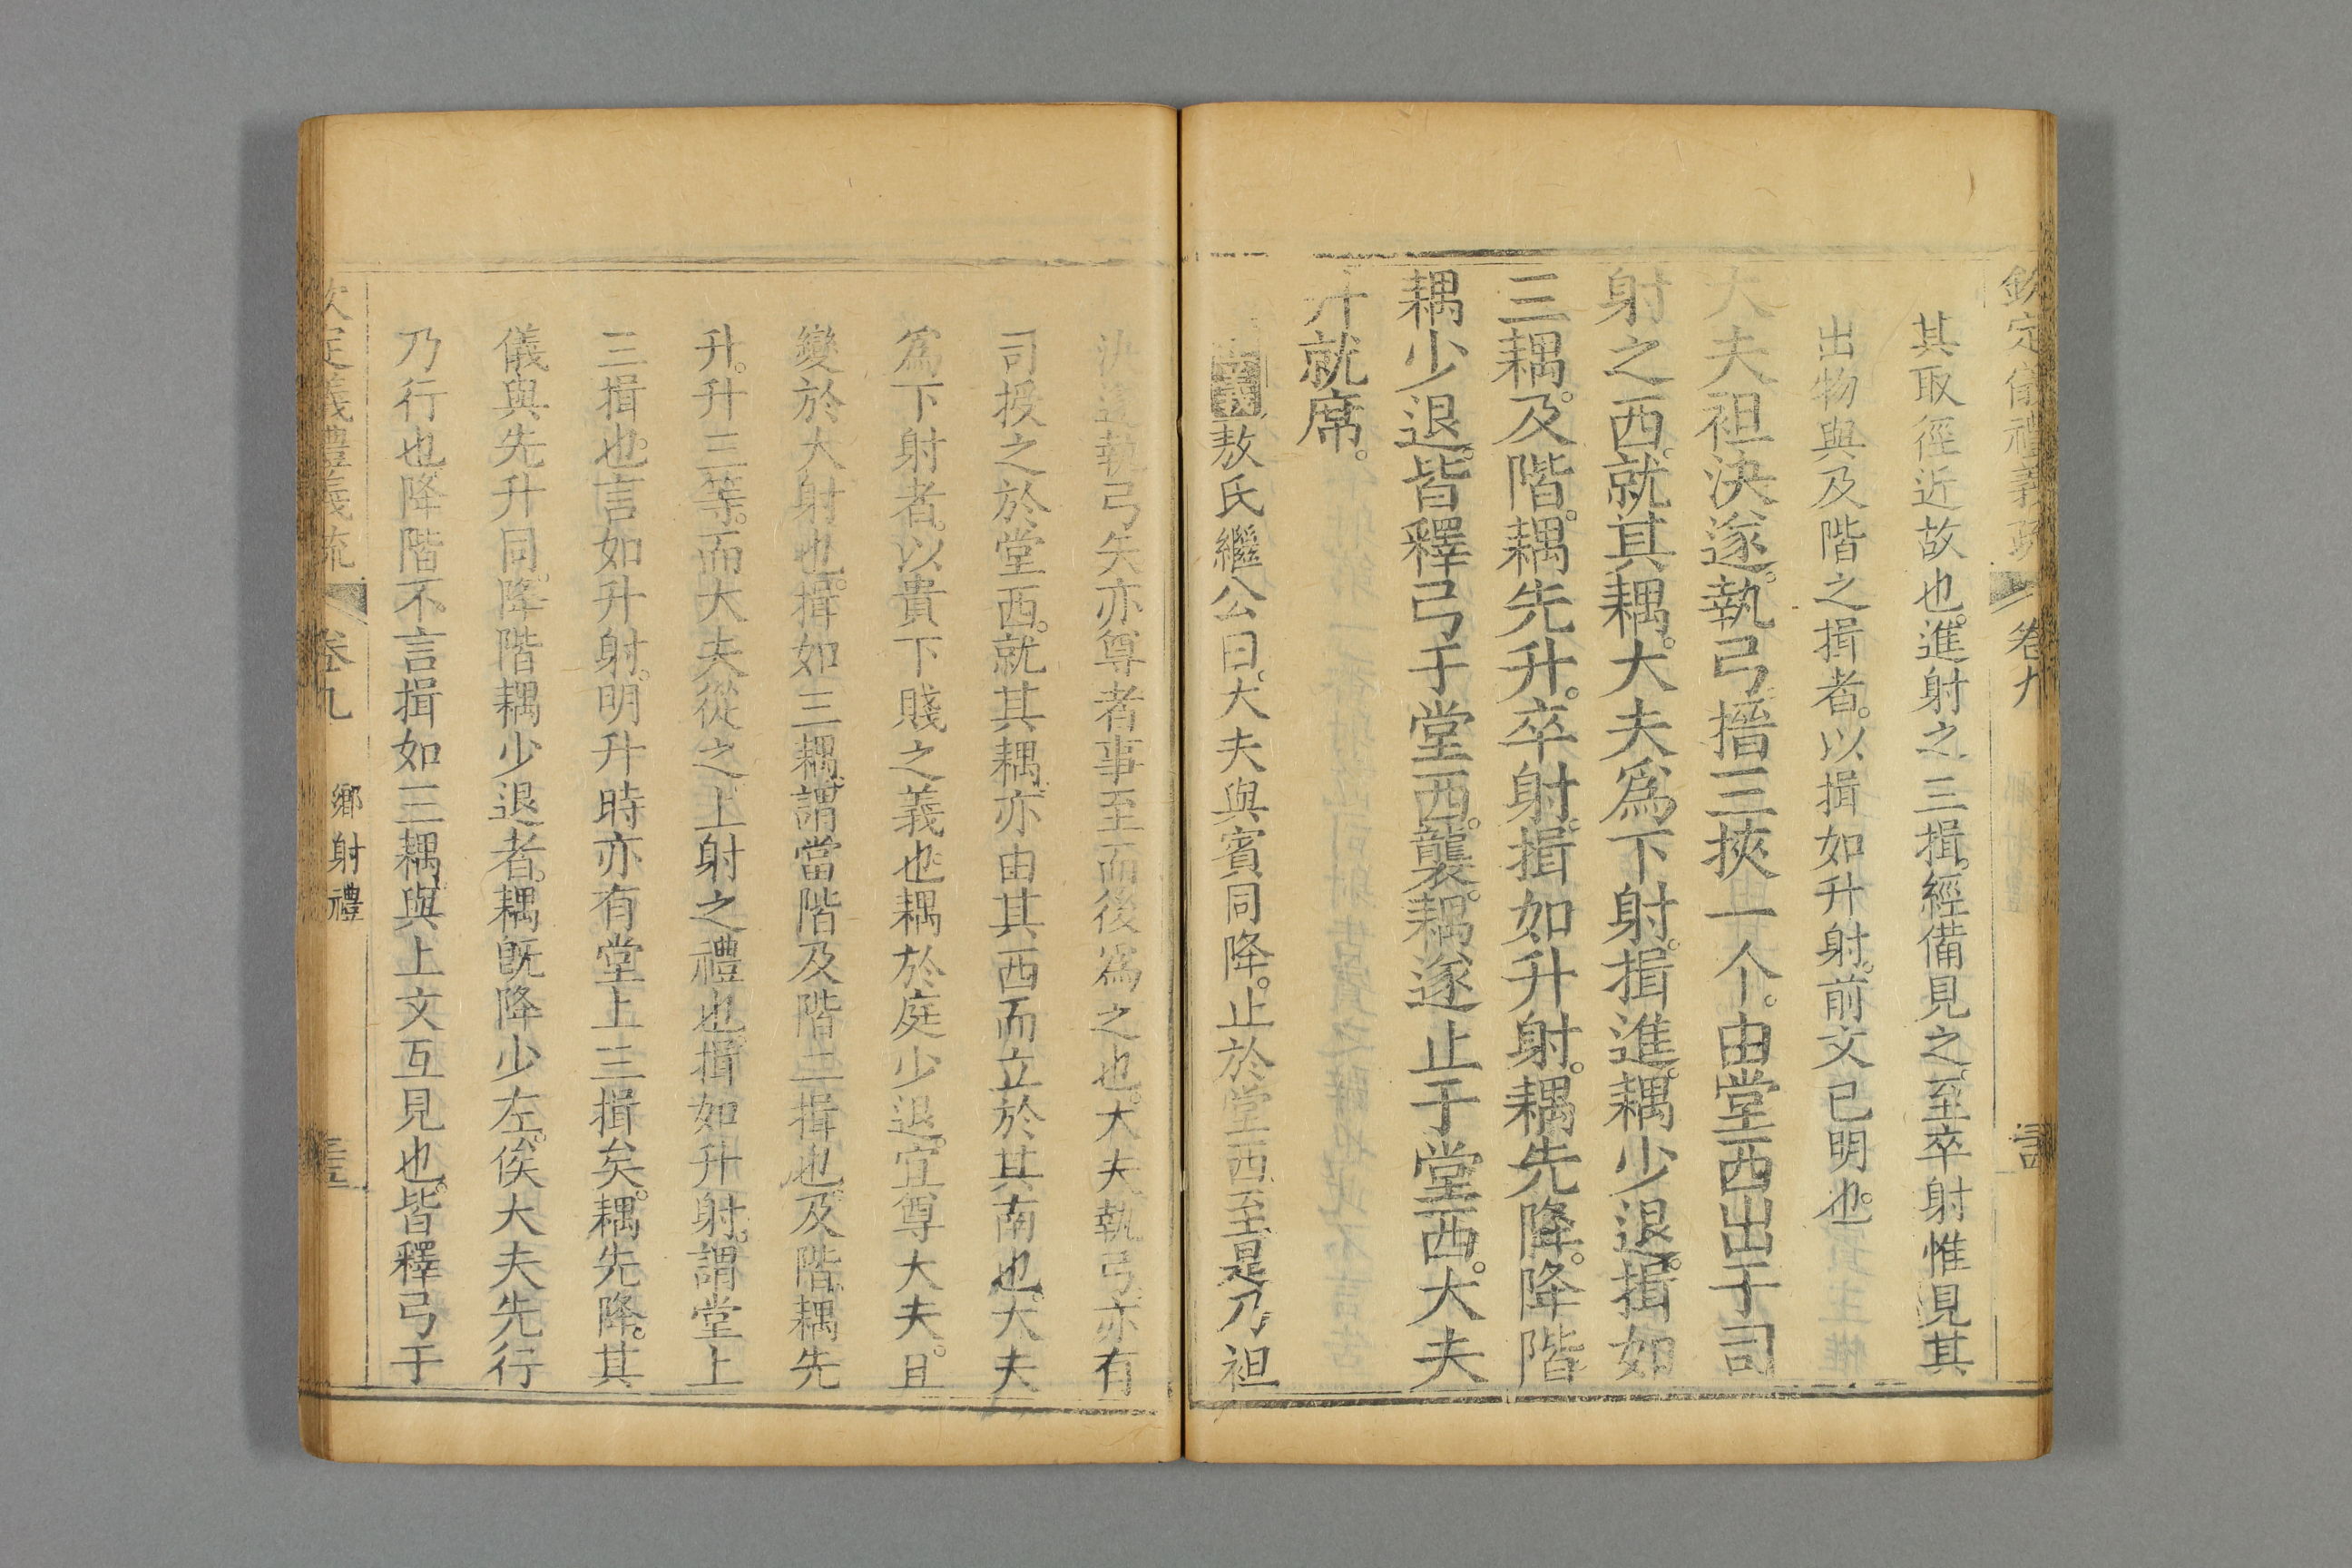 欽定儀禮義疏 卷九
其取徑近故也。進射之三揖。經備見之。至卒射惟見其
出物與及階之揖者。以揖如升射。前文已明也。
大夫袒決遂。執弓搢三挾一个。由堂西出于司
射之西。就其耦。大夫為下射。揖進。耦少退。揖如
三耦。及階。耦先升。卒射。揖如升射。耦先降。降階
耦少退。皆釋弓于堂西。襲。耦遂止于堂西。大夫
升就席。
敖氏繼公曰。大夫與賓同降。止於堂西。至是乃袒
決遂執弓矢。亦尊者事至而後為之也。大夫執弓。亦有
司授之於堂西。就其耦。亦由其西而立於其南也。大夫
為下射者。以貴下賤之義也。耦於庭少退。宜尊大夫。且
變於大射也。揖如三耦。謂當階及階二揖也。及階。耦先
升。升三等。而大夫從之。上射之禮也。揖如升射。謂堂上
三揖也。言如升射。明升時亦有堂上三揖矣。耦先降。其
儀與先升同。降階耦少退者。耦既降少左。俟大夫先行
乃行也。降階不言揖如三耦。與上文互見也。皆釋弓于
欽定義禮義疏 卷九 鄉射禮